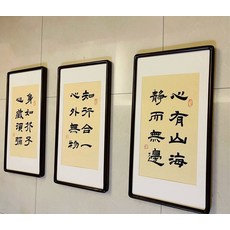 心有山海
靜而無邊
知行合一
心外無物
身如芥子
心藏須彌